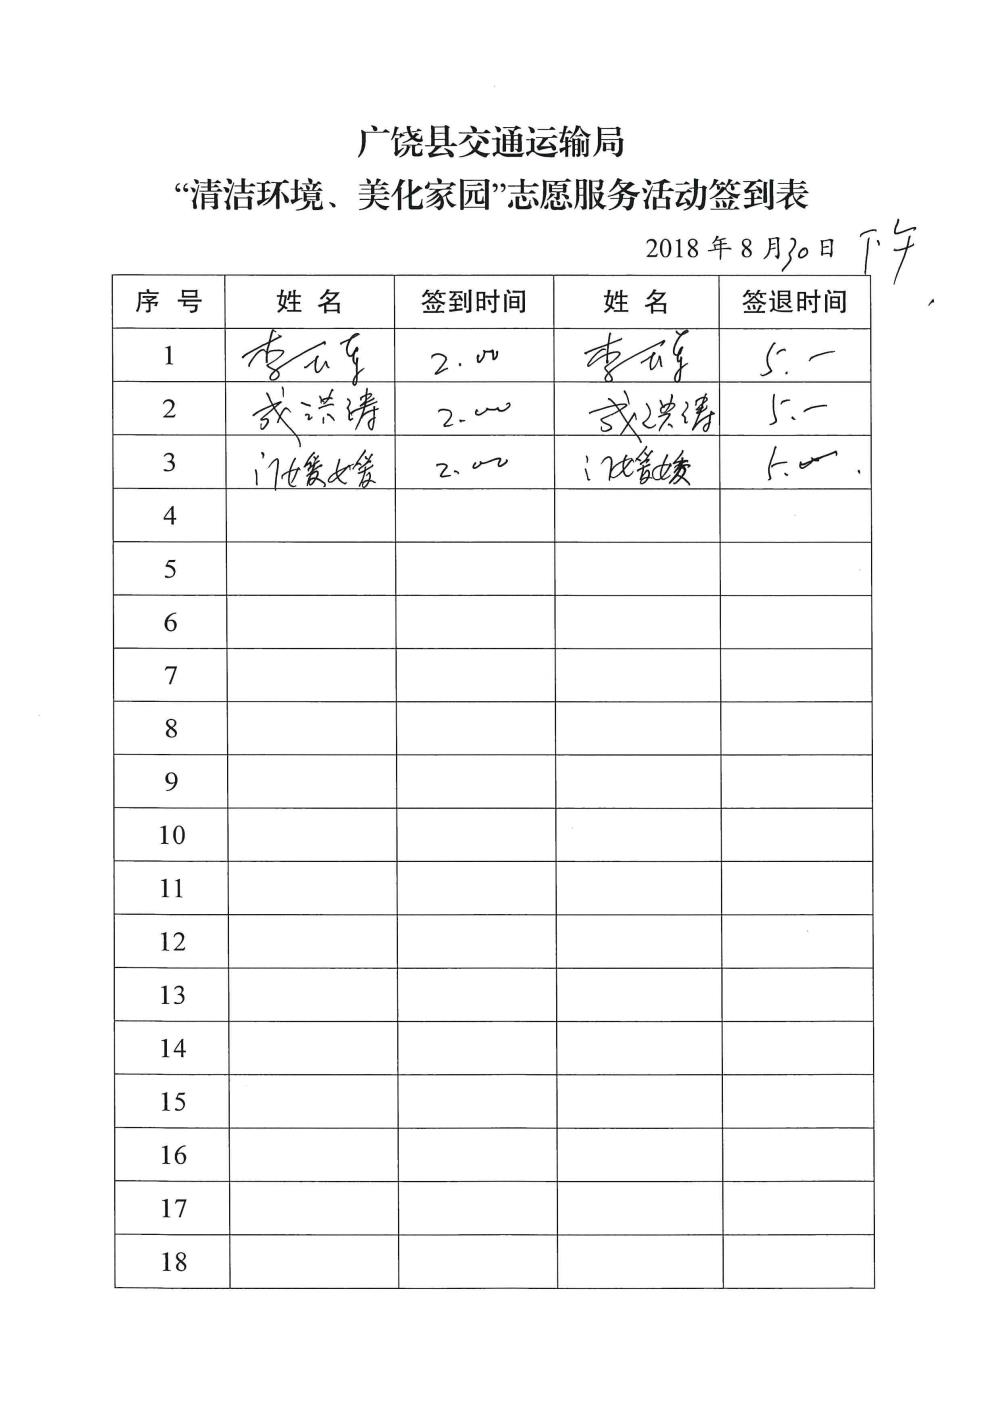 广饶县交通运输局
“清洁环境、美化家园”志愿服务活动签到表
2018 年 8 月30日 下午
序 号 姓 名 签到时间 姓 名 签退时间
1 李 2.00 李 5.一
2 成洪涛 2.00 成洪涛 5.一
3 门媛媛 2.00 门媛媛 5.00
4
5
6
7
8
9
10
11
12
13
14
15
16
17
18